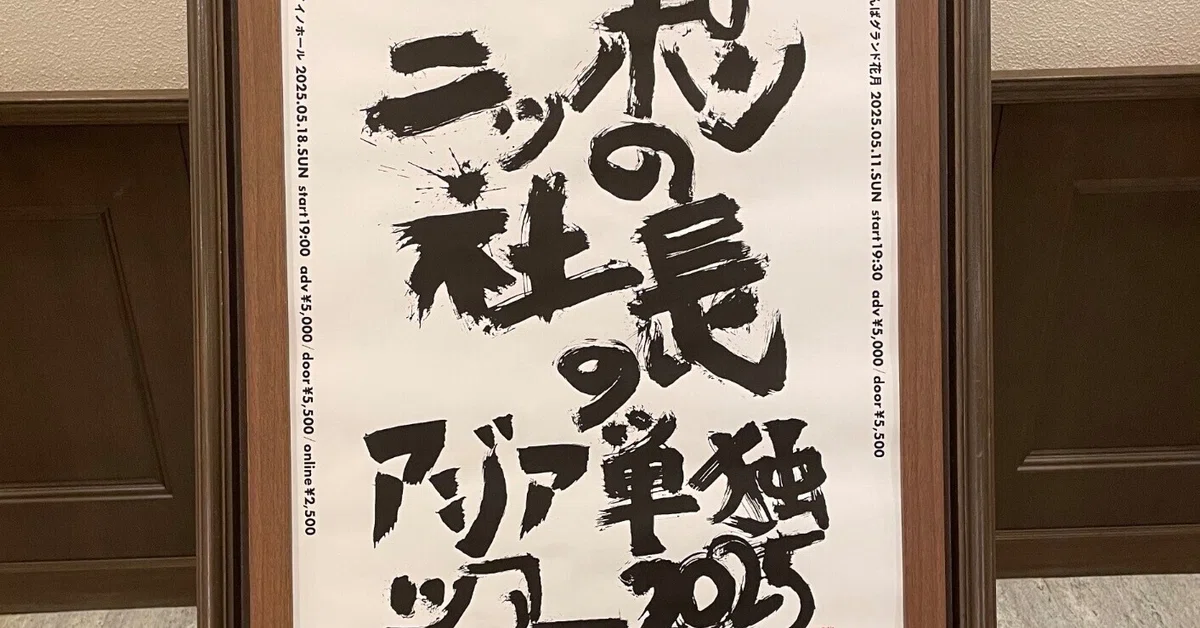 んばグランド花月 2025.05.11.SUN start19:30 adv ¥5,000 / door ¥5,500
ニッポン
の
社長
の
アジア単独
ツアー2025
イノホール 2025.05.18.SUN start19:00 adv ¥5,000 / door ¥5,500 / online ¥2,500